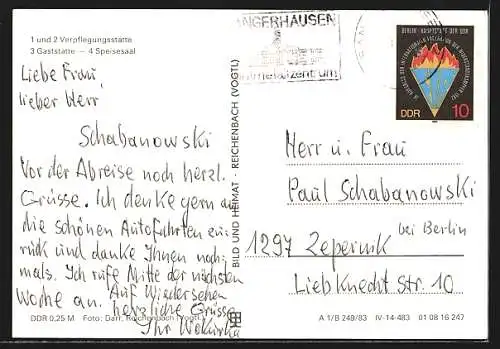 1 und 2 Verpflegungsstätte
3 Gaststätte — 4 Speisesaal
Liebe Frau,
lieber Herr
Schabanowski
Vor der Abreise noch herzl.
Grüsse. Ich denke gern an
die schönen Autofahrten zu-
rück und danke Ihnen noch-
mals. Ich rufe Mitte der nächsten
Woche an. Auf Wiedersehen
herzliche Grüsse
Ihr
DDR 0,25 M Foto: Darr, Reichenbach (Vogtl.)
BILD UND HEIMAT · REICHENBACH (VOGTL)
ANGERHAUSEN
BERLIN - HAUPTSTADT DER DDR
DDR 10
Herr u. Frau
Paul Schabanowski
bei Berlin
1297 Zepernik
Liebknecht Str. 10
A 1/B 249/83 IV-14-483 01 08 16 247